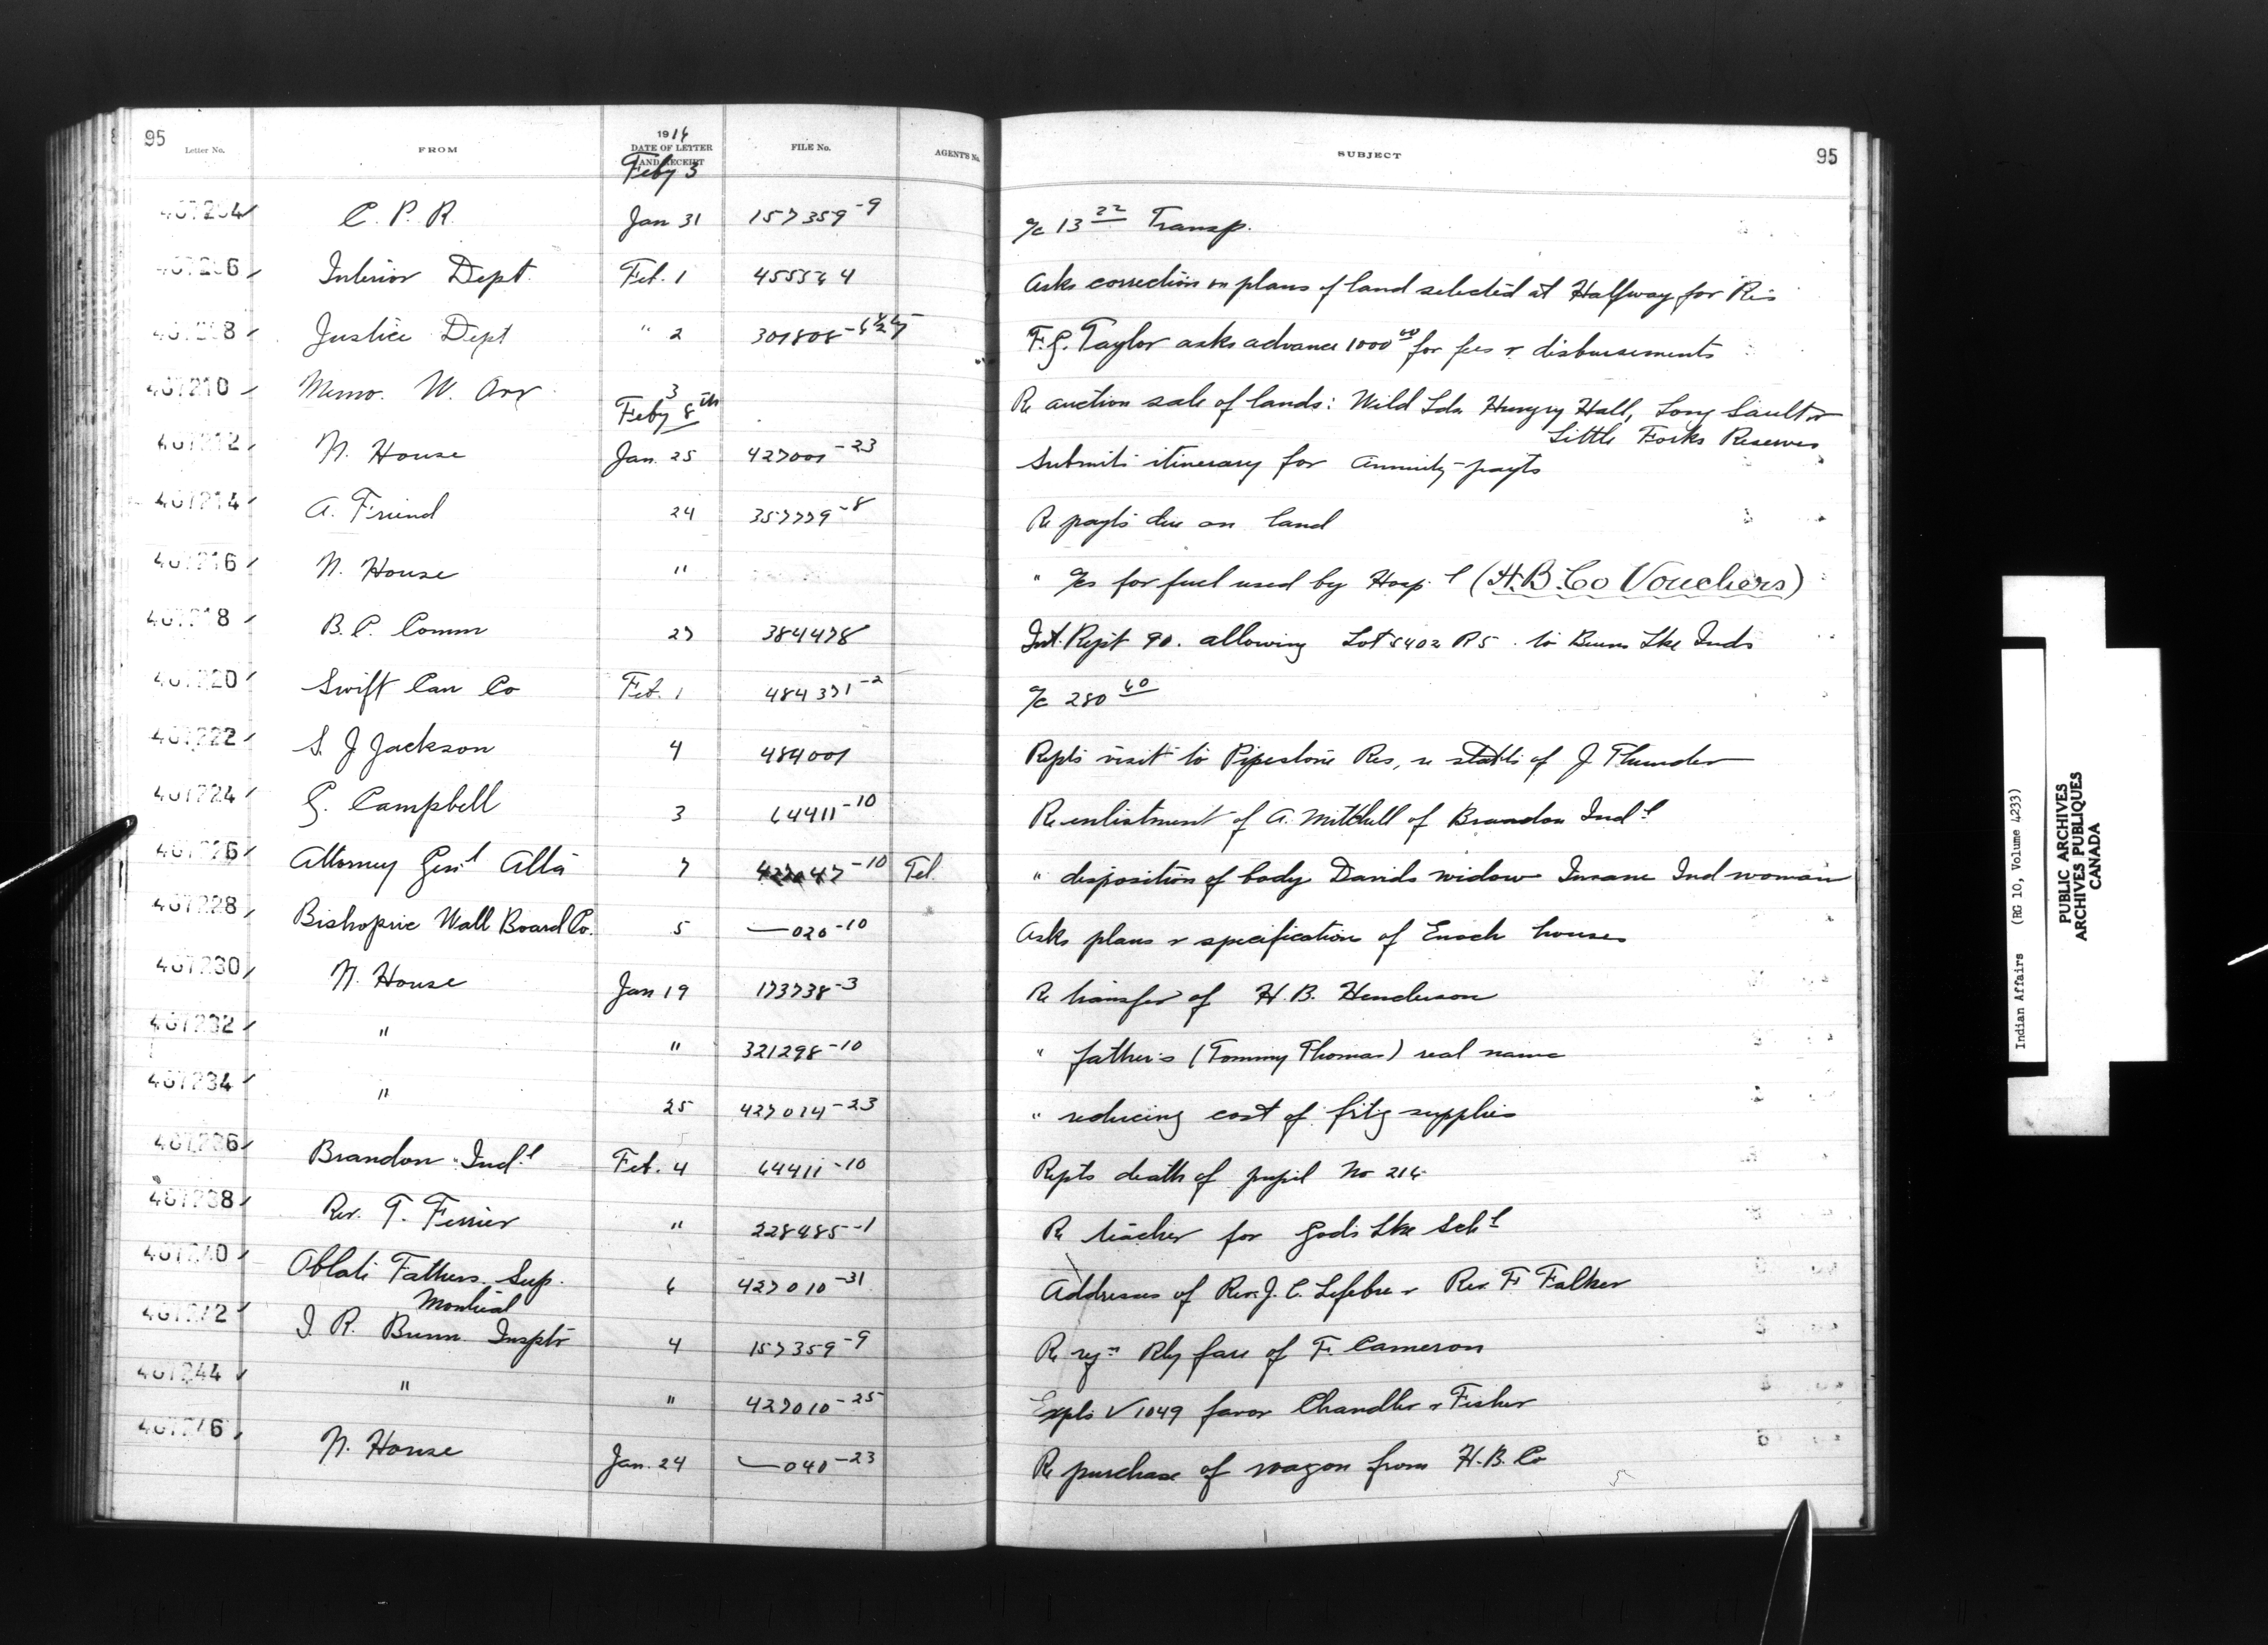 95
Letter No. FROM 1916 DATE OF LETTER AND RECEIPT FILE No. AGENT'S No. SUBJECT 95
Feby 3
467204 C. P. R. Jan 31 157359-9 a/c 13 22 Transp.
467206 Interior Dept. Feb. 1 455564 Asks correction on plans of land selected at Halfway for Res
467208 Justice Dept " 2 301808 F. G. Taylor asks advance 1000 00 for fees & disbursements
467210 Memo. W. Orr 3 Re auction sale of lands: Wild Lds Hungry Hall, Long Sault &
Little Forks Reserves
Feby 8th
467212 N. House Jan. 25 427001-23 Submits itinerary for Annuity payts
467214 A. Friend 24 357779-8 Re payts due on land
467216 N. House " " a/cs for fuel used by Hosp.l (H.B.Co Vouchers)
467218 B. C. Comm 27 384478 Int. Rept 90. allowing Lot 5402 R5. to Burns Lke Inds
467220 Swift Can Co Feb. 1 484371-2 a/c 280 60
467222 S. J Jackson 4 484001 Repts visit to Pipestone Res, re of J Thunder
467224 G. Campbell 3 64411-10 Re enlistment of A. Mitchell of Brandon Ind.l
467226 Attorney Gen'l Alta 7 47-10 Tel. " disposition of body Davids widow Insane Ind woman
467228 Bishopric Wall Board Co. 5 —020-10 Asks plans & specification of Enoch houses
467230 N. House Jan 19 173738-3 Re transfer of H. B. Henderson
467232 " " 321298-10 " father's (Tommy Thomas) real name
467234 " 25 427014-23 " reducing cost of frtg supplies
467236 Brandon Ind.l Feb. 4 64411-10 Repts death of pupil No 216
467238 Rev. T. Ferrier " 228485-1 Re teacher for Gods Lke Sch.l
467240 Oblate Fathers. Sup. 6 427010-31 Addresses of Rev. J. C. Lefebre & Rev. F. Falker
Montreal
467242 J. R. Bunn Inspt'r 4 157359-9 Re Rly fare of F. Cameron
467244 " " 427010-25 Expls V 1049 favor Chandler & Fisher
467246 N. House Jan. 24 —040-23 Re purchase of wagon from H. B. Co
Indian Affairs (RG 10, Volume 4233)
PUBLIC ARCHIVES
ARCHIVES PUBLIQUES
CANADA